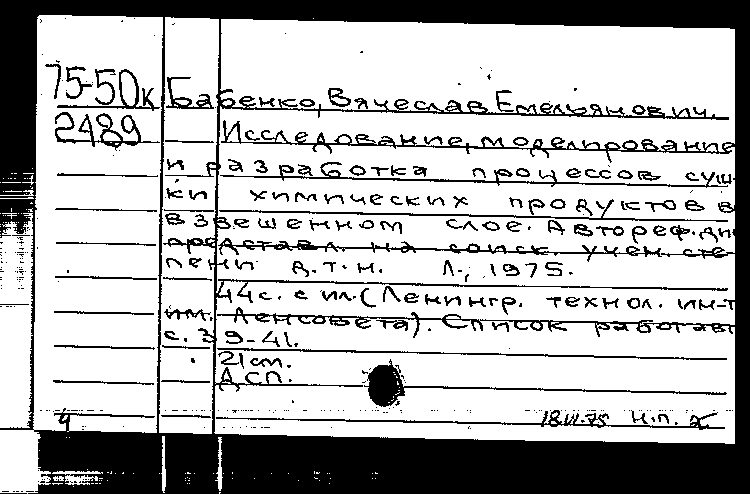 75-50к Бабенко, Вячеслав Емельянович.
2489 Исследование, моделирование
и разработка процессов суш-
ки химических продуктов во
взвешенном слое. Автореф. ди
представл. на соиск. учен. сте-
пени д.т.н. Л., 1975.
44с. с ил. (Ленингр. технол. ин-т
им. Ленсовета). Список работ авт
с. 39-41.
21 см.
ДСП.
4 18.VI.75 Н.П.